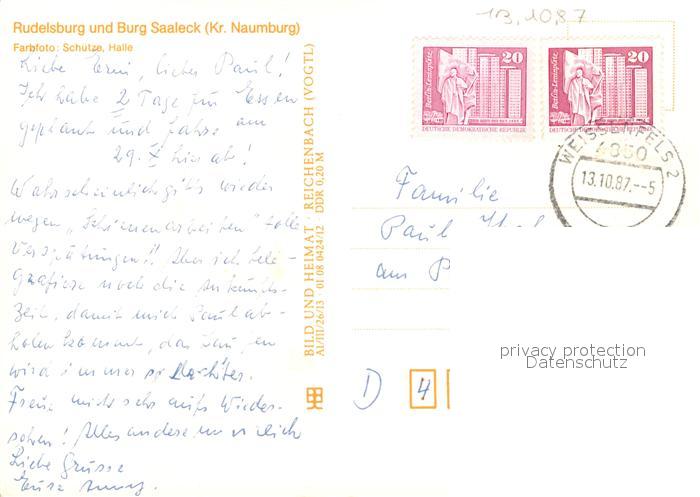 Rudelsburg und Burg Saaleck (Kr. Naumburg)
Farbfoto: Schütze, Halle
Liebe Erni, lieber Paul!
Ich habe 2 Tage zum Essen
geplant und fahre am
29. X hier ab!
Wahrscheinlich gibt's wieder
wegen "Schienenarbeiten" tolle
Verspätungen!! Aber ich tele-
grafiere noch die Ankunfts-
zeit, damit mich Paul ab-
holen kommt, das
wird immer
Freue mich sehr aufs Wieder-
sehen! Alles andere mündlich
Liebe Grüsse
Eure
BILD UND HEIMAT REICHENBACH (VOGTL)
A1/III/26/13 01 08 0424/12 DDR 0,20 M
13.10.87
Berlin-Leninplatz
20
DEUTSCHE DEMOKRATISCHE REPUBLIK
Berlin-Leninplatz
20
DEUTSCHE DEMOKRATISCHE REPUBLIK
WEISSENFELS 2
4850
13.10.87.--5
Familie
Paul
am P
D 4
privacy protection
Datenschutz